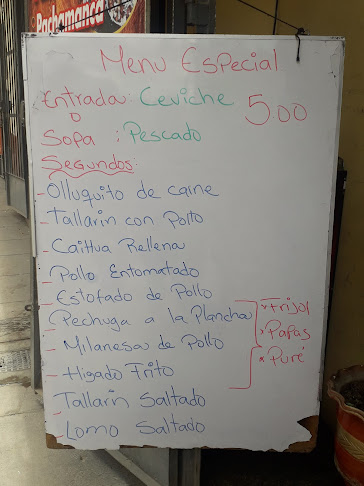 Pachamanca
Menu Especial
Entrada: Ceviche 5.00
o
Sopa : Pescado
Segundos:
- Olluquito de carne
- Tallarin con Pollo
Caihua Rellena
- Pollo Entomatado
- Estofado de Pollo
- Pechuga a la Plancha * Frijol
- Milanesa de Pollo * Papas
- Higado Frito * Puré
- Tallarin Saltado
- Lomo Saltado